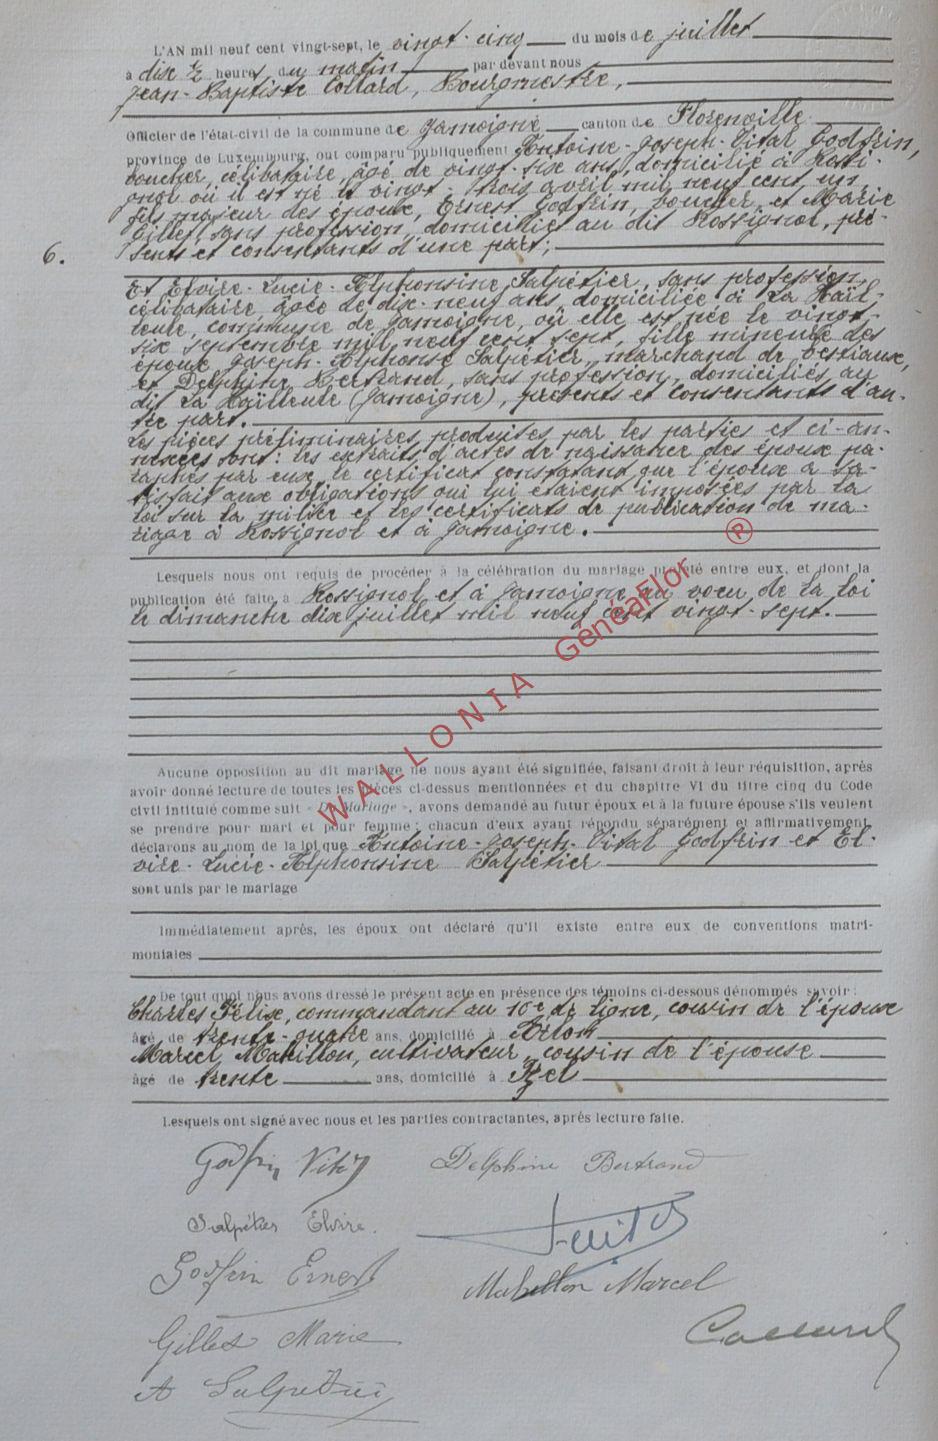 L'AN mil neuf cent vingt-sept, le vingt-cinq du mois de juillet
à dix ½ heures du matin par devant nous
Jean-Baptiste Collard, Bourgmestre,
Officier de l'état-civil de la commune de Jamoigne canton de Florenville
province de Luxembourg, ont comparu publiquement Antoine-Joseph-Vital Godfrin,
boucher, célibataire, âgé de vingt-six ans, domicilié à Rossi-
gnol où il est né le vingt-trois avril mil neuf cent un,
fils majeur des époux, Ernest Godfrin, boucher, et Marie
Gilles, sans profession, domiciliés au dit Rossignol, pré-
sents et consentants d'une part;
6.
Et Elvire-Lucie-Alphonsine Salpétier, sans profession,
célibataire, âgée de dix-neuf ans, domiciliée à La Haïl-
leule, commune de Jamoigne, où elle est née le vingt-
six septembre mil neuf cent sept, fille mineure des
époux Joseph-Alphonse Salpétier, marchand de bestiaux,
et Delphine Bertrand, sans profession, domiciliés au
dit La Haïlleule (Jamoigne), présents et consentants d'au-
tre part.
Les pièces préliminaires produites par les parties et ci-an-
nexées sont: les extraits d'actes de naissance des époux pa-
raphés par eux, le certificat constatant que l'époux a sa-
tisfait aux obligations qui lui étaient imposées par la
loi sur la milice et les certificats de publication de ma-
riage à Rossignol et à Jamoigne.
Lesquels nous ont requis de procéder à la célébration du mariage projeté entre eux, et dont la
publication été faite à Rossignol et à Jamoigne au vœu de la loi
le dimanche dix juillet mil neuf cent vingt-sept.
WALLONIA GeneaFlor ®
Aucune opposition au dit mariage ne nous ayant été signifiée, faisant droit à leur réquisition, après
avoir donné lecture de toutes les pièces ci-dessus mentionnées et du chapitre VI du titre cinq du Code
civil intitulé comme suit « Du Mariage », avons demandé au futur époux et à la future épouse s'ils veulent
se prendre pour mari et pour femme; chacun d'eux ayant répondu séparément et affirmativement,
déclarons au nom de la loi que Antoine-Joseph-Vital Godfrin et El-
vire-Lucie-Alphonsine Salpétier
sont unis par le mariage
Immédiatement après, les époux ont déclaré qu'il existe entre eux de conventions matri-
moniales
De tout quoi nous avons dressé le présent acte en présence des témoins ci-dessous dénommés savoir:
Charles Félix, commandant au 10e de ligne, cousin de l'époux
âgé de trente-quatre ans, domicilié à Arlon
Marcel Mabillon, cultivateur, cousin de l'épouse
âgé de trente ans, domicilié à Izel
Lesquels ont signé avec nous et les parties contractantes, après lecture faite.
Godfrin Vital Delphine Bertrand
Salpétier Elvire.
Godfrin Ernest Mabillon Marcel
Gilles Marie Collard
A Salpétier